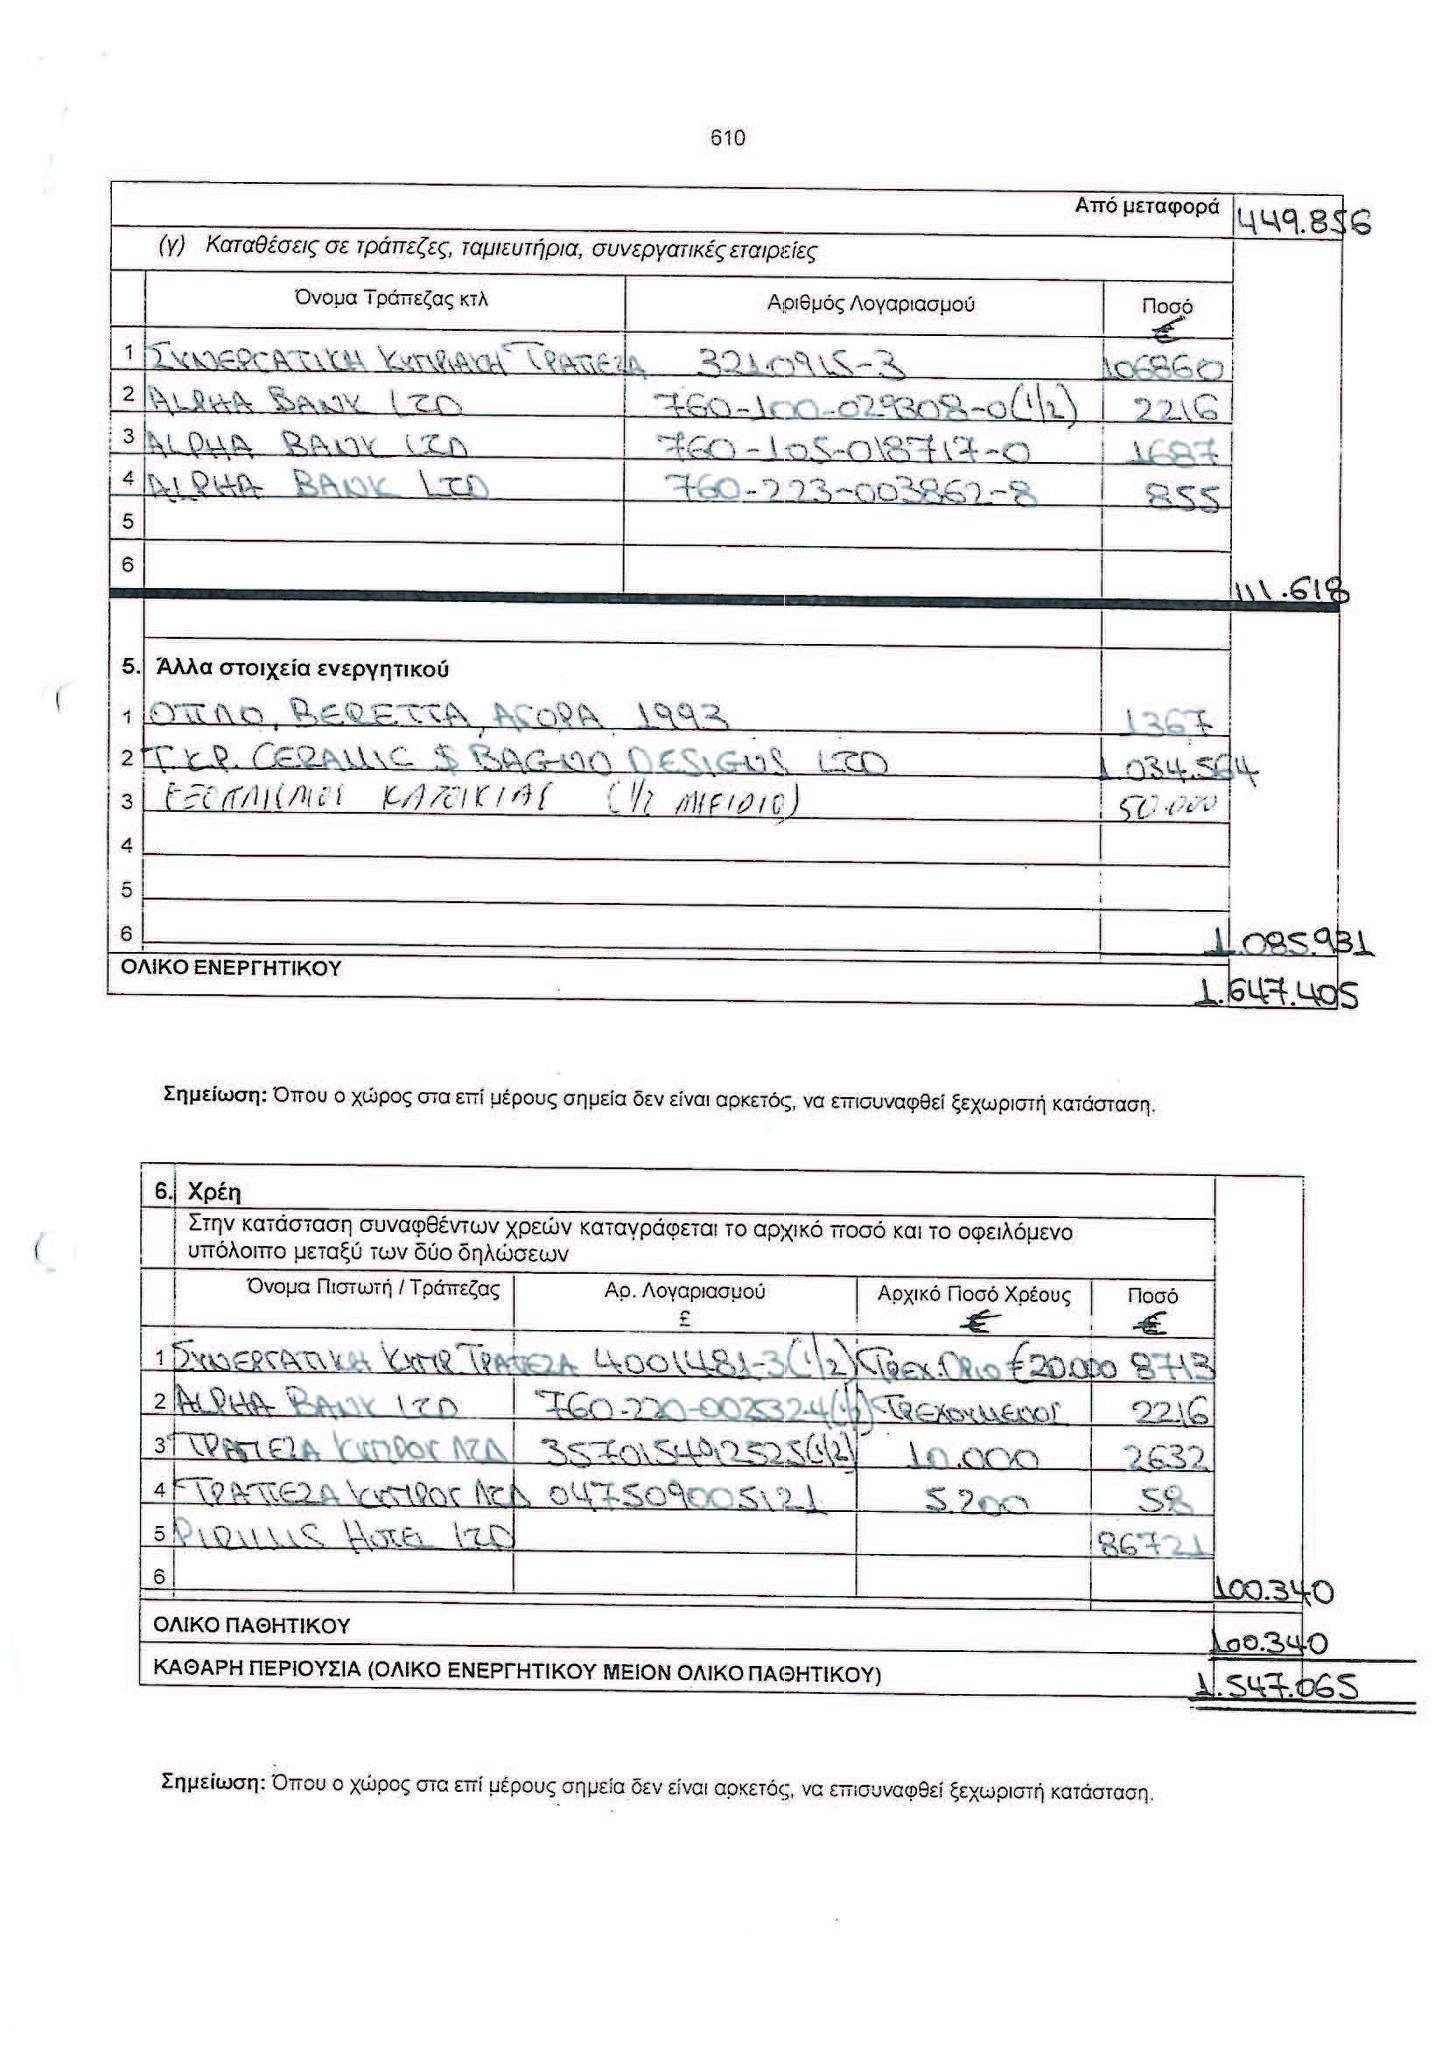 610
Από μεταφορά 449.856
(γ) Καταθέσεις σε τράπεζες, ταμιευτήρια, συνεργατικές εταιρείες
Όνομα Τράπεζας κτλ Αριθμός Λογαριασμού Ποσό
€
1 ΣΥΝΕΡΓΑΤΙΚΗ ΚΥΠΡΙΑΚΗ ΤΡΑΠΕΖΑ 3210915-3 106860
2 ALPHA BANK LTD 760-100-029308-0(1/2) 2216
3 ALPHA BANK LTD 760-105-018717-0 1687
4 ALPHA BANK LTD 760-223-003862-8 855
5
6
111.618
5. Άλλα στοιχεία ενεργητικού
1 ΟΠΛΟ, BERETTA, ΑΓΟΡΑ 1993 1367
2 T.K.P. CERAMIC $ BAGNO DESIGNS LTD 1.034.564
3 ΕΞΟΠΛΙΣΜΟΣ ΚΑΤΟΙΚΙΑΣ (1/2 ΜΕΡΙΔΙΟ) 50.000
4
5
6 1.085.931
ΟΛΙΚΟ ΕΝΕΡΓΗΤΙΚΟΥ 1.647.405
Σημείωση: Όπου ο χώρος στα επί μέρους σημεία δεν είναι αρκετός, να επισυναφθεί ξεχωριστή κατάσταση.
6. Χρέη
Στην κατάσταση συναφθέντων χρεών καταγράφεται το αρχικό ποσό και το οφειλόμενο
υπόλοιπο μεταξύ των δύο δηλώσεων
Όνομα Πιστωτή / Τράπεζας Αρ. Λογαριασμού Αρχικό Ποσό Χρέους Ποσό
£ € €
1 ΣΥΝΕΡΓΑΤΙΚΗ ΚΥΠΡ. ΤΡΑΠΕΖΑ 4001481-3(1/2) ΤΡΕΧ. ΟΡΙΟ €20.000 8713
2 ALPHA BANK LTD 760-220-002532-4(1/2) ΤΡΕΧΟΥΜΕΝΟΣ 2216
3 ΤΡΑΠΕΖΑ ΚΥΠΡΟΥ ΛΤΔ 3570154912525(1/2) 10.000 2632
4 ΤΡΑΠΕΖΑ ΚΥΠΡΟΥ ΛΤΔ 047509005121 5.200 58
5 HOTEL LTD 86721
6
100.340
ΟΛΙΚΟ ΠΑΘΗΤΙΚΟΥ 100.340
ΚΑΘΑΡΗ ΠΕΡΙΟΥΣΙΑ (ΟΛΙΚΟ ΕΝΕΡΓΗΤΙΚΟΥ ΜΕΙΟΝ ΟΛΙΚΟ ΠΑΘΗΤΙΚΟΥ) 1.547.065
Σημείωση: Όπου ο χώρος στα επί μέρους σημεία δεν είναι αρκετός, να επισυναφθεί ξεχωριστή κατάσταση.